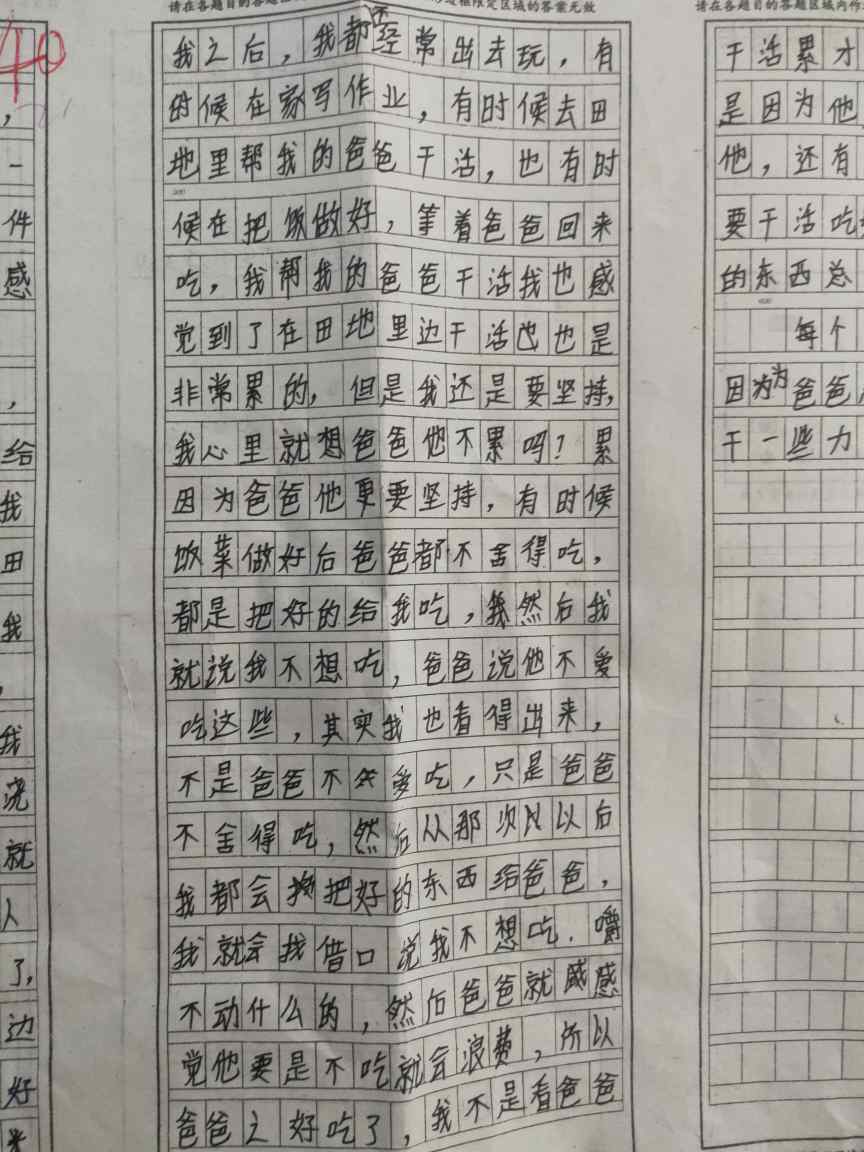 请在各题目的答题区
边框限定区域的答案无效
请在各题目的答题区域内作
40
，
一
件
感
，
给
我
田
我
，
我
浇
就
人
了，
边
好
我之后，我都不经常出去玩，有
时候在家写作业，有时候去田
地里帮我的爸爸干活，也有时
候在把饭做好，等着爸爸回来
吃，我帮我的爸爸干活我也感
觉到了在田地里边干活也也是
非常累的，但是我还是要坚持，
我心里就想爸爸他不累吗？累
因为爸爸他更要坚持，有时候
饭菜做好后爸爸都不舍得吃，
都是把好的给我吃，我然后我
就说我不想吃，爸爸说他不爱
吃这些，其实我也看得出来，
不是爸爸不爱吃，只是爸爸
不舍得吃，然后从那次以以后
我都会把好的东西给爸爸，
我就会找借口说我不想吃.嚼
不动什么的，然后爸爸就感感
觉他要是不吃就会浪费，所以
爸爸之好吃了，我不是看爸爸
干活累才
是因为他
他，还有
要干活吃
的东西总
每个
因为为爸爸
干一些力